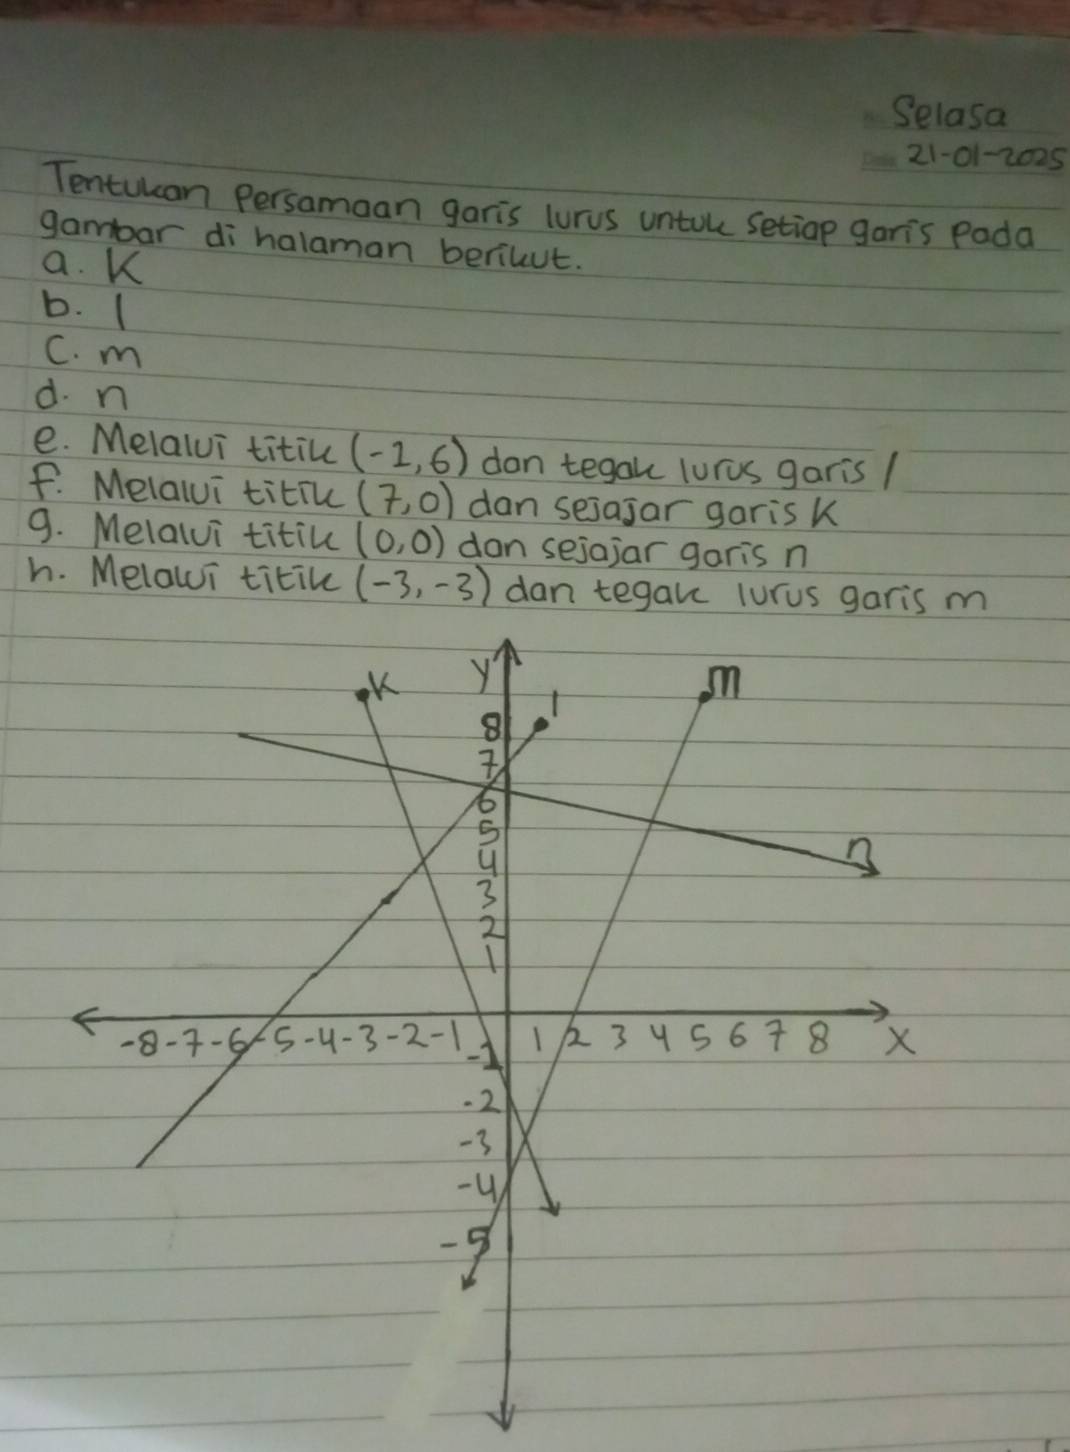 Selasa
21-01-2025
Tentukan Persamaan garis lurus untuk setiap garis Pada
gambar di halaman berikut.
a. K
b. l
C. m
d. n
e. Melalui titik (-2,6) dan tegak lurus garis l
f. Melalui titik (7,0) dan sejajar garis K
g. Melalui titik (0,0) dan sejajar garis n
h. Melalui titik (-3,-3) dan tegak lurus garis m
K
y
l
m
8
7
6
5
4
3
2
1
n
-8 -7 -6 -5 -4 -3 -2 -1 1 2 3 4 5 6 7 8 X
-1
-2
-3
-4
-5